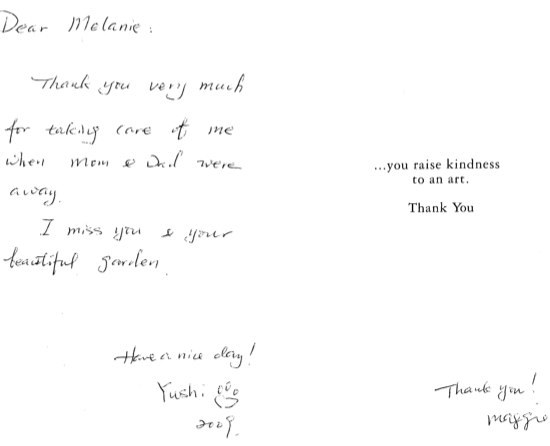 Dear Melanie:
Thank you very much
for taking care of me
when mom & Dad were
away.
I miss you & your
beautiful garden.
Have a nice day!
Yushi
2009.
...you raise kindness
to an art.
Thank You
Thank you!
maggie